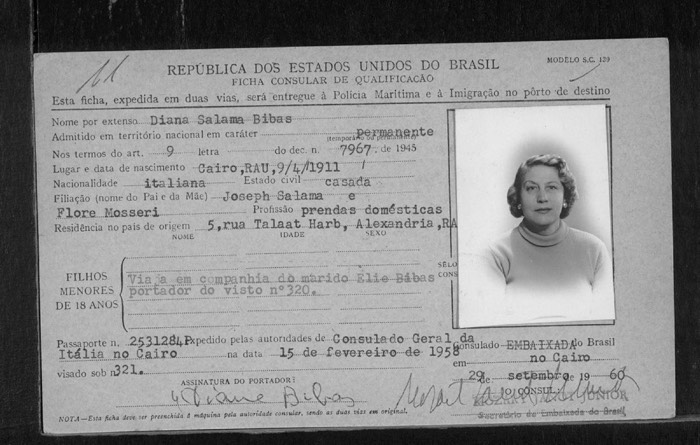 11
REPÚBLICA DOS ESTADOS UNIDOS DO BRASIL
MODÊLO S.C. 139
FICHA CONSULAR DE QUALIFICAÇÃO
Esta ficha, expedida em duas vias, será entregue à Polícia Marítima e à Imigração no pôrto de destino
Nome por extenso Diana Salama Bibas
Admitido em território nacional em caráter permanente
(temporário ou permanente)
Nos termos do art. 9 letra do dec. n. 7967, de 1945
Lugar e data de nascimento Cairo,RAU,9/4/1911
Nacionalidade italiana Estado civil casada
Filiação (nome do Pai e da Mãe) Joseph Salama e
Flore Mosseri Profissão prendas domésticas
Residência no país de origem 5,rua Talaat Harb, Alexandria,RA
NOME IDADE SEXO
FILHOS MENORES DE 18 ANOS
Viaja em companhia do marido Élie Bibas
portador do visto nº320.
SÊLO
CONS
Passaporte n. 2531284P Expedido pelas autoridades de Consulado Geral da
Itália no Cairo na data 15 de fevereiro de 1958
visado sob n. 321.
Consulado EMBAIXADA do Brasil
em no Cairo
29 de setembro 19 60
ASSINATURA DO PORTADOR:
O CONSUL:
Diane Bibas
JUNIOR
Secretário da Embaixada do Brasil
NOTA—Esta ficha deve ser preenchida à máquina pela autoridade consular, sendo as duas vias em original.